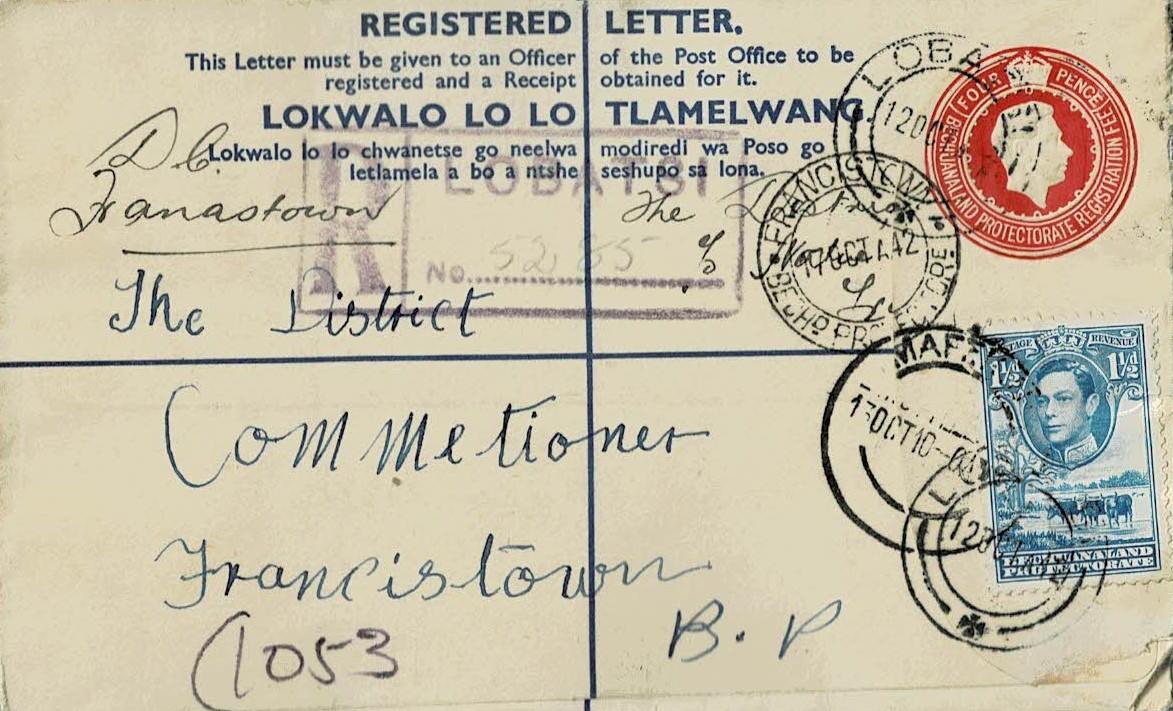 REGISTERED LETTER.
This Letter must be given to an Officer of the Post Office to be
registered and a Receipt obtained for it.
LOKWALO LO LO TLAMELWANG.
Lokwalo lo lo chwanetse go neelwa modiredi wa Poso go
letlamela a bo a ntshe seshupo sa lona.
FOUR PENCE
BECHUANALAND PROTECTORATE REGISTRATION FEE
LOBA
12 OC
D.C.
Franastown
R LOBATSI
No. 5285
The
FRANCISTOWN
17 OCT 42
BECHD PRO
The District
Commetioner
Francistown
B.P
1053
MAF
13 OCT 10
POSTAGE REVENUE
1½ 1½
BECHUANALAND
PROTECTORATE
L
12